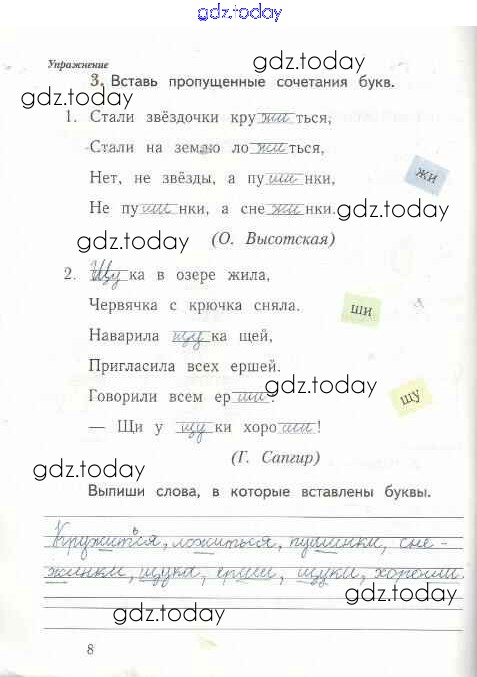 gdz.today
Упражнение
gdz.today
3. Вставь пропущенные сочетания букв.
gdz.today
1. Стали звёздочки кружиться,
Стали на землю ложиться,
Нет, не звёзды, а пушинки,
жи
Не пушинки, а снежинки.
gdz.today
gdz.today
(О. Высотская)
2. Щука в озере жила,
Червячка с крючка сняла.
ши
Наварила щука щей,
Пригласила всех ершей.
gdz.today
Говорили всем ерши:
щу
— Щи у щуки хороши!
(Г. Сапгир)
gdz.today
Выпиши слова, в которые вставлены буквы.
Кружиться, ложиться, пушинки, сне-
жинки, щука, ерши, щуки, хороши.
gdz.today
gdz.today
8